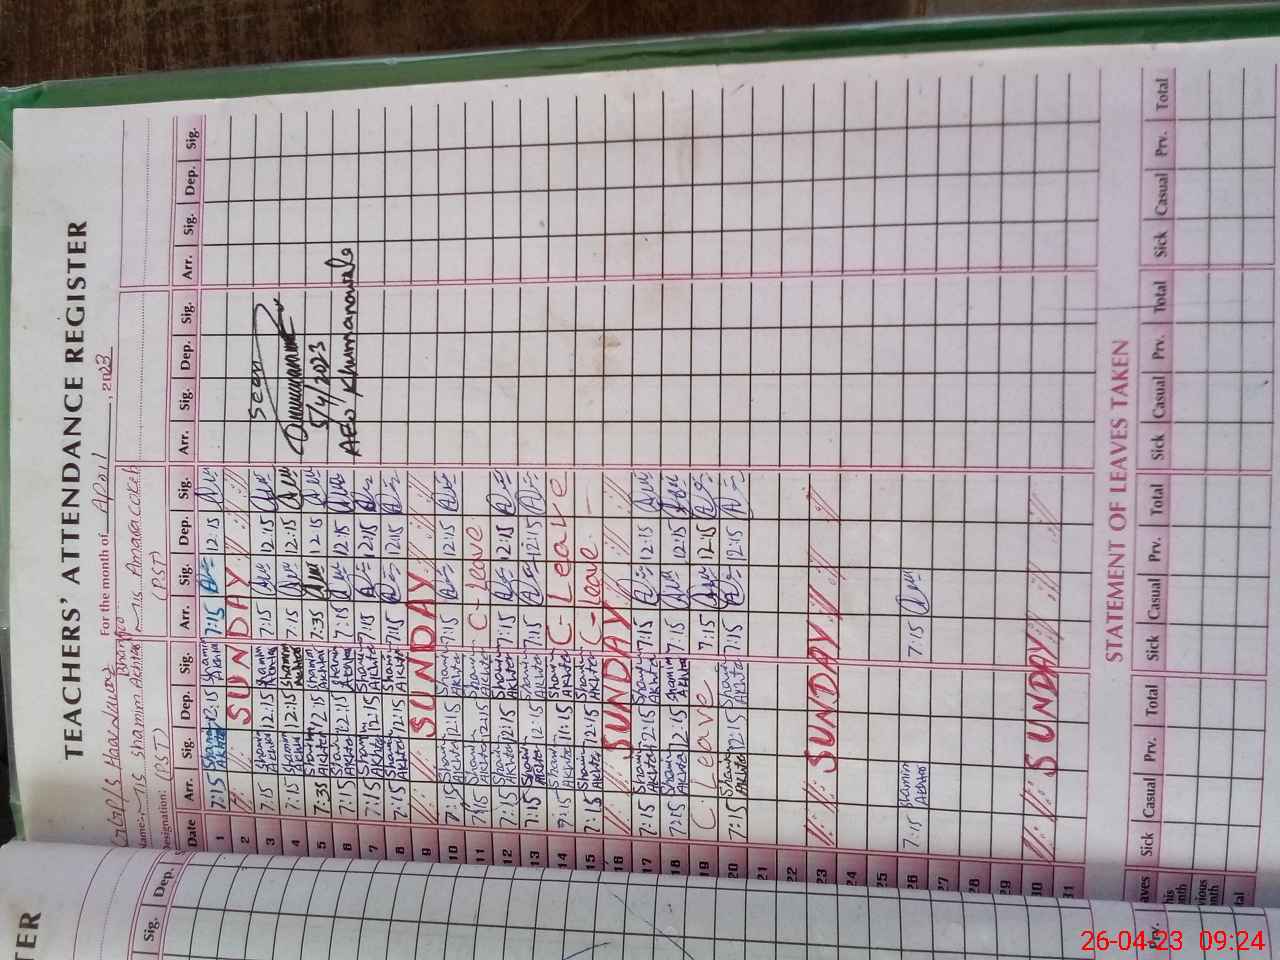 TEACHERS' ATTENDANCE REGISTER
For the month of April, 2023
Name: Mis Shamim Akhtar
Designation: (PST)
(PST)
Date Arr. Sig. Dep. Sig. Arr. Sig. Dep. Sig. Arr. Sig. Dep. Sig. Arr. Sig. Dep. Sig.
1 7:15 Shamim Akhtar 12:15 Shamim Akhtar 7:15 12:15
2 SUNDAY
3 7:15 Shamim Akhtar 12:15 Shamim Akhtar 7:15 12:15
4 7:15 Shamim Akhtar 12:15 Shamim Akhtar 7:15 12:15
5 7:35 Shamim Akhtar 12:15 Shamim Akhtar 7:35 12:15
6 7:15 Shamim Akhtar 12:15 Shamim Akhtar 7:15 12:15
7 7:15 Shamim Akhtar 12:15 Shamim Akhtar 7:15 12:15
8 7:15 Shamim Akhtar 12:15 Shamim Akhtar 7:15 12:15
9 SUNDAY
10 7:15 Shamim Akhtar 12:15 Shamim Akhtar 7:15 12:15
11 7:15 Shamim Akhtar 12:15 Shamim Akhtar C-Leave
12 7:15 Shamim Akhtar 12:15 Shamim Akhtar 7:15 12:15
13 7:15 Shamim Akhtar 12:15 Shamim Akhtar 7:15 12:15
14 7:15 Shamim Akhtar 11:15 Shamim Akhtar C-Leave
15 7:15 Shamim Akhtar 12:15 Shamim Akhtar C-Leave
16 SUNDAY
17 7:15 Shamim Akhtar 12:15 Shamim Akhtar 7:15 12:15
18 7:15 Shamim Akhtar 12:15 Shamim Akhtar 7:15 12:15
19 C-Leave 7:15 12:15
20 7:15 Shamim Akhtar 12:15 Shamim Akhtar 7:15 12:15
21
22
23 SUNDAY
24
25
26 7:15 Shamim Akhtar 7:15
27
28
29
30 SUNDAY
31
Seen
5/4/2023
AEO Khumanowala
STATEMENT OF LEAVES TAKEN
Sick Casual Prv. Total Sick Casual Prv. Total Sick Casual Prv. Total Sick Casual Prv. Total
Sig. Dep.
Prv.
26-04-23 09:24